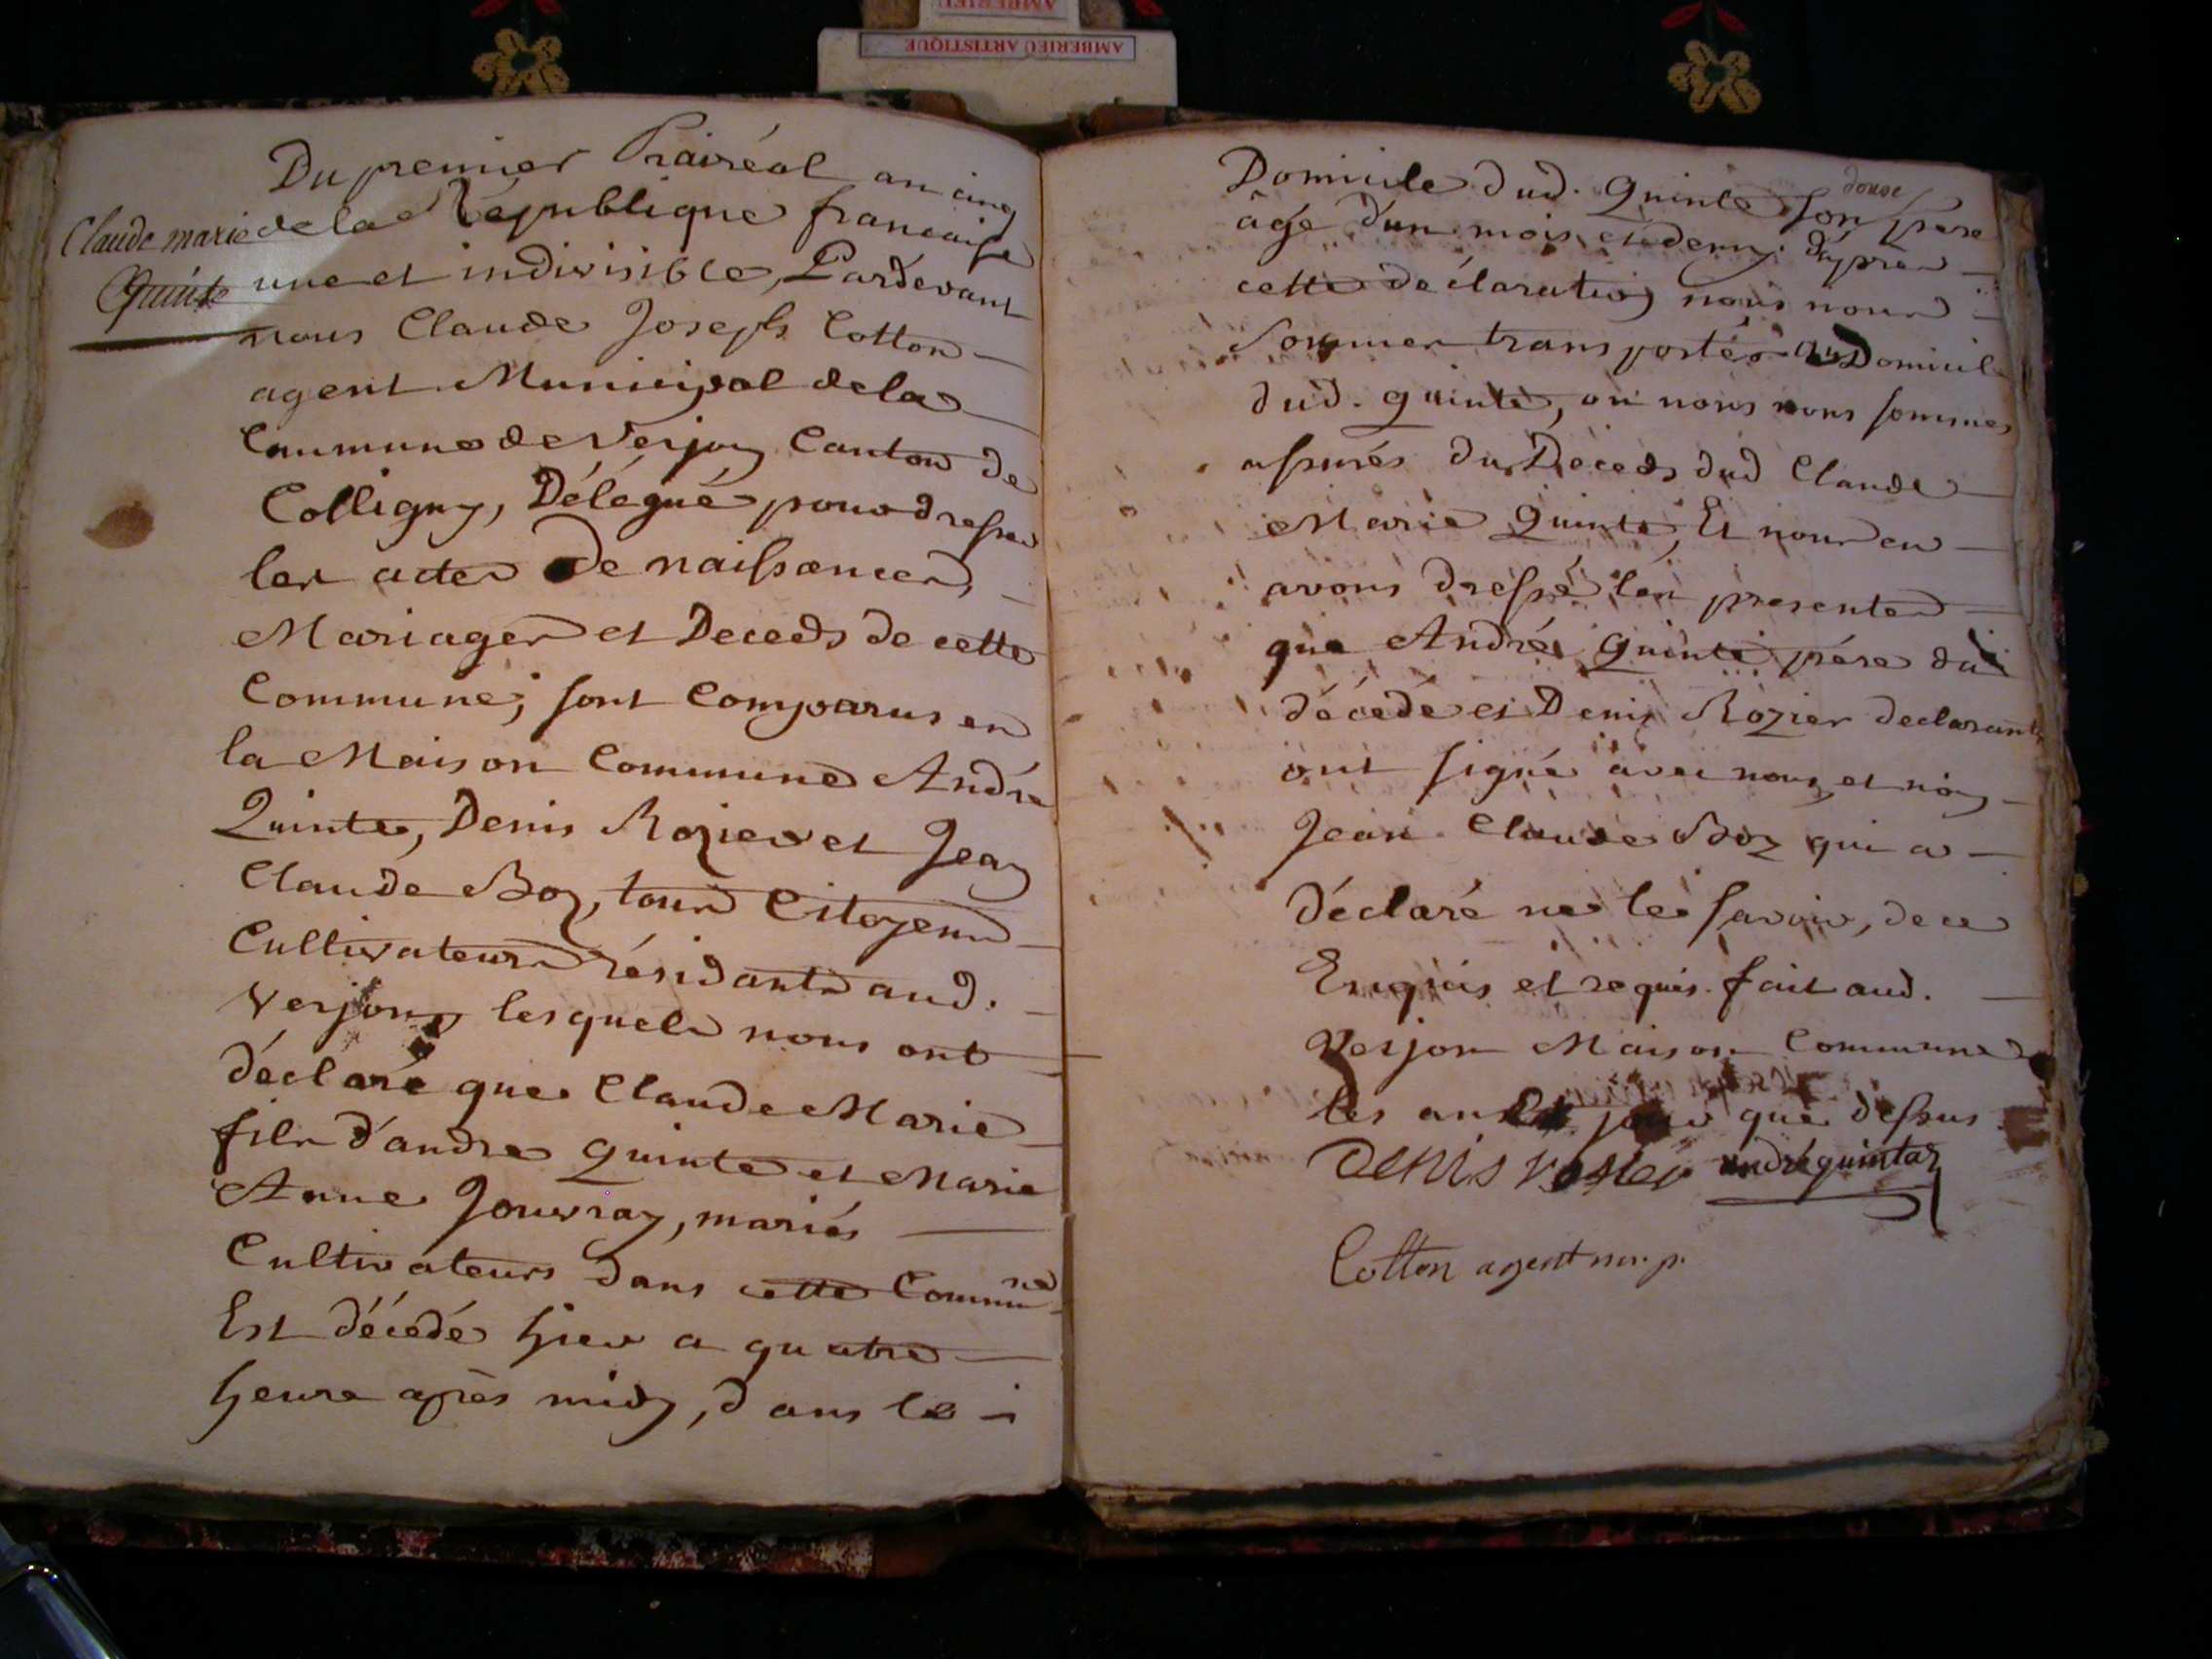 AMBERIEU
AMBERIEU ARTISTIQUE
Claude marie
Quinte
Du premier Prairéal an cinq
de la République francaise
une et indivisible, Pardevant
nous Claude Joseph Cotton
agent Municipal de la
Commune de Verjon Canton de
Colligny, Délégué pour dresser
les actes de naissances,
Mariages et Deceds de cette
Commune, sont Comparus en
la Maison Commune André
Quinte, Denis Rozier et Jean
Claude Boz, tous Citoyens
Cultivateurs résidants aud.
Verjon, lesquels nous ont
déclaré que Claude Marie
fils d'andre quinte et Marie
Anne Jouvray, mariés
Cultivateurs dans cette Commune
Est décédé hier a quatre
heure après midy, dans le
douze
Domicile dud. quinte son père
âgé d'un mois et demy. d'après
cette déclaration nous nous
sommes transportés au Domicile
dud. quinte, ou nous nous sommes
assurés du Deceds dud Claude
Marie quinte, Et nous en
avons dressé les presentes
que André quinte père du
décédé et Denis Rozier declarants
ont signé avec nous, et non
Jean Claude Boz qui a
déclaré ne le savoir, de ce
Enquis et requis. fait aud.
Verjon Maison Commune
les an et jour que dessus
Denis rosier andré quinta
Cotton agent m. p.